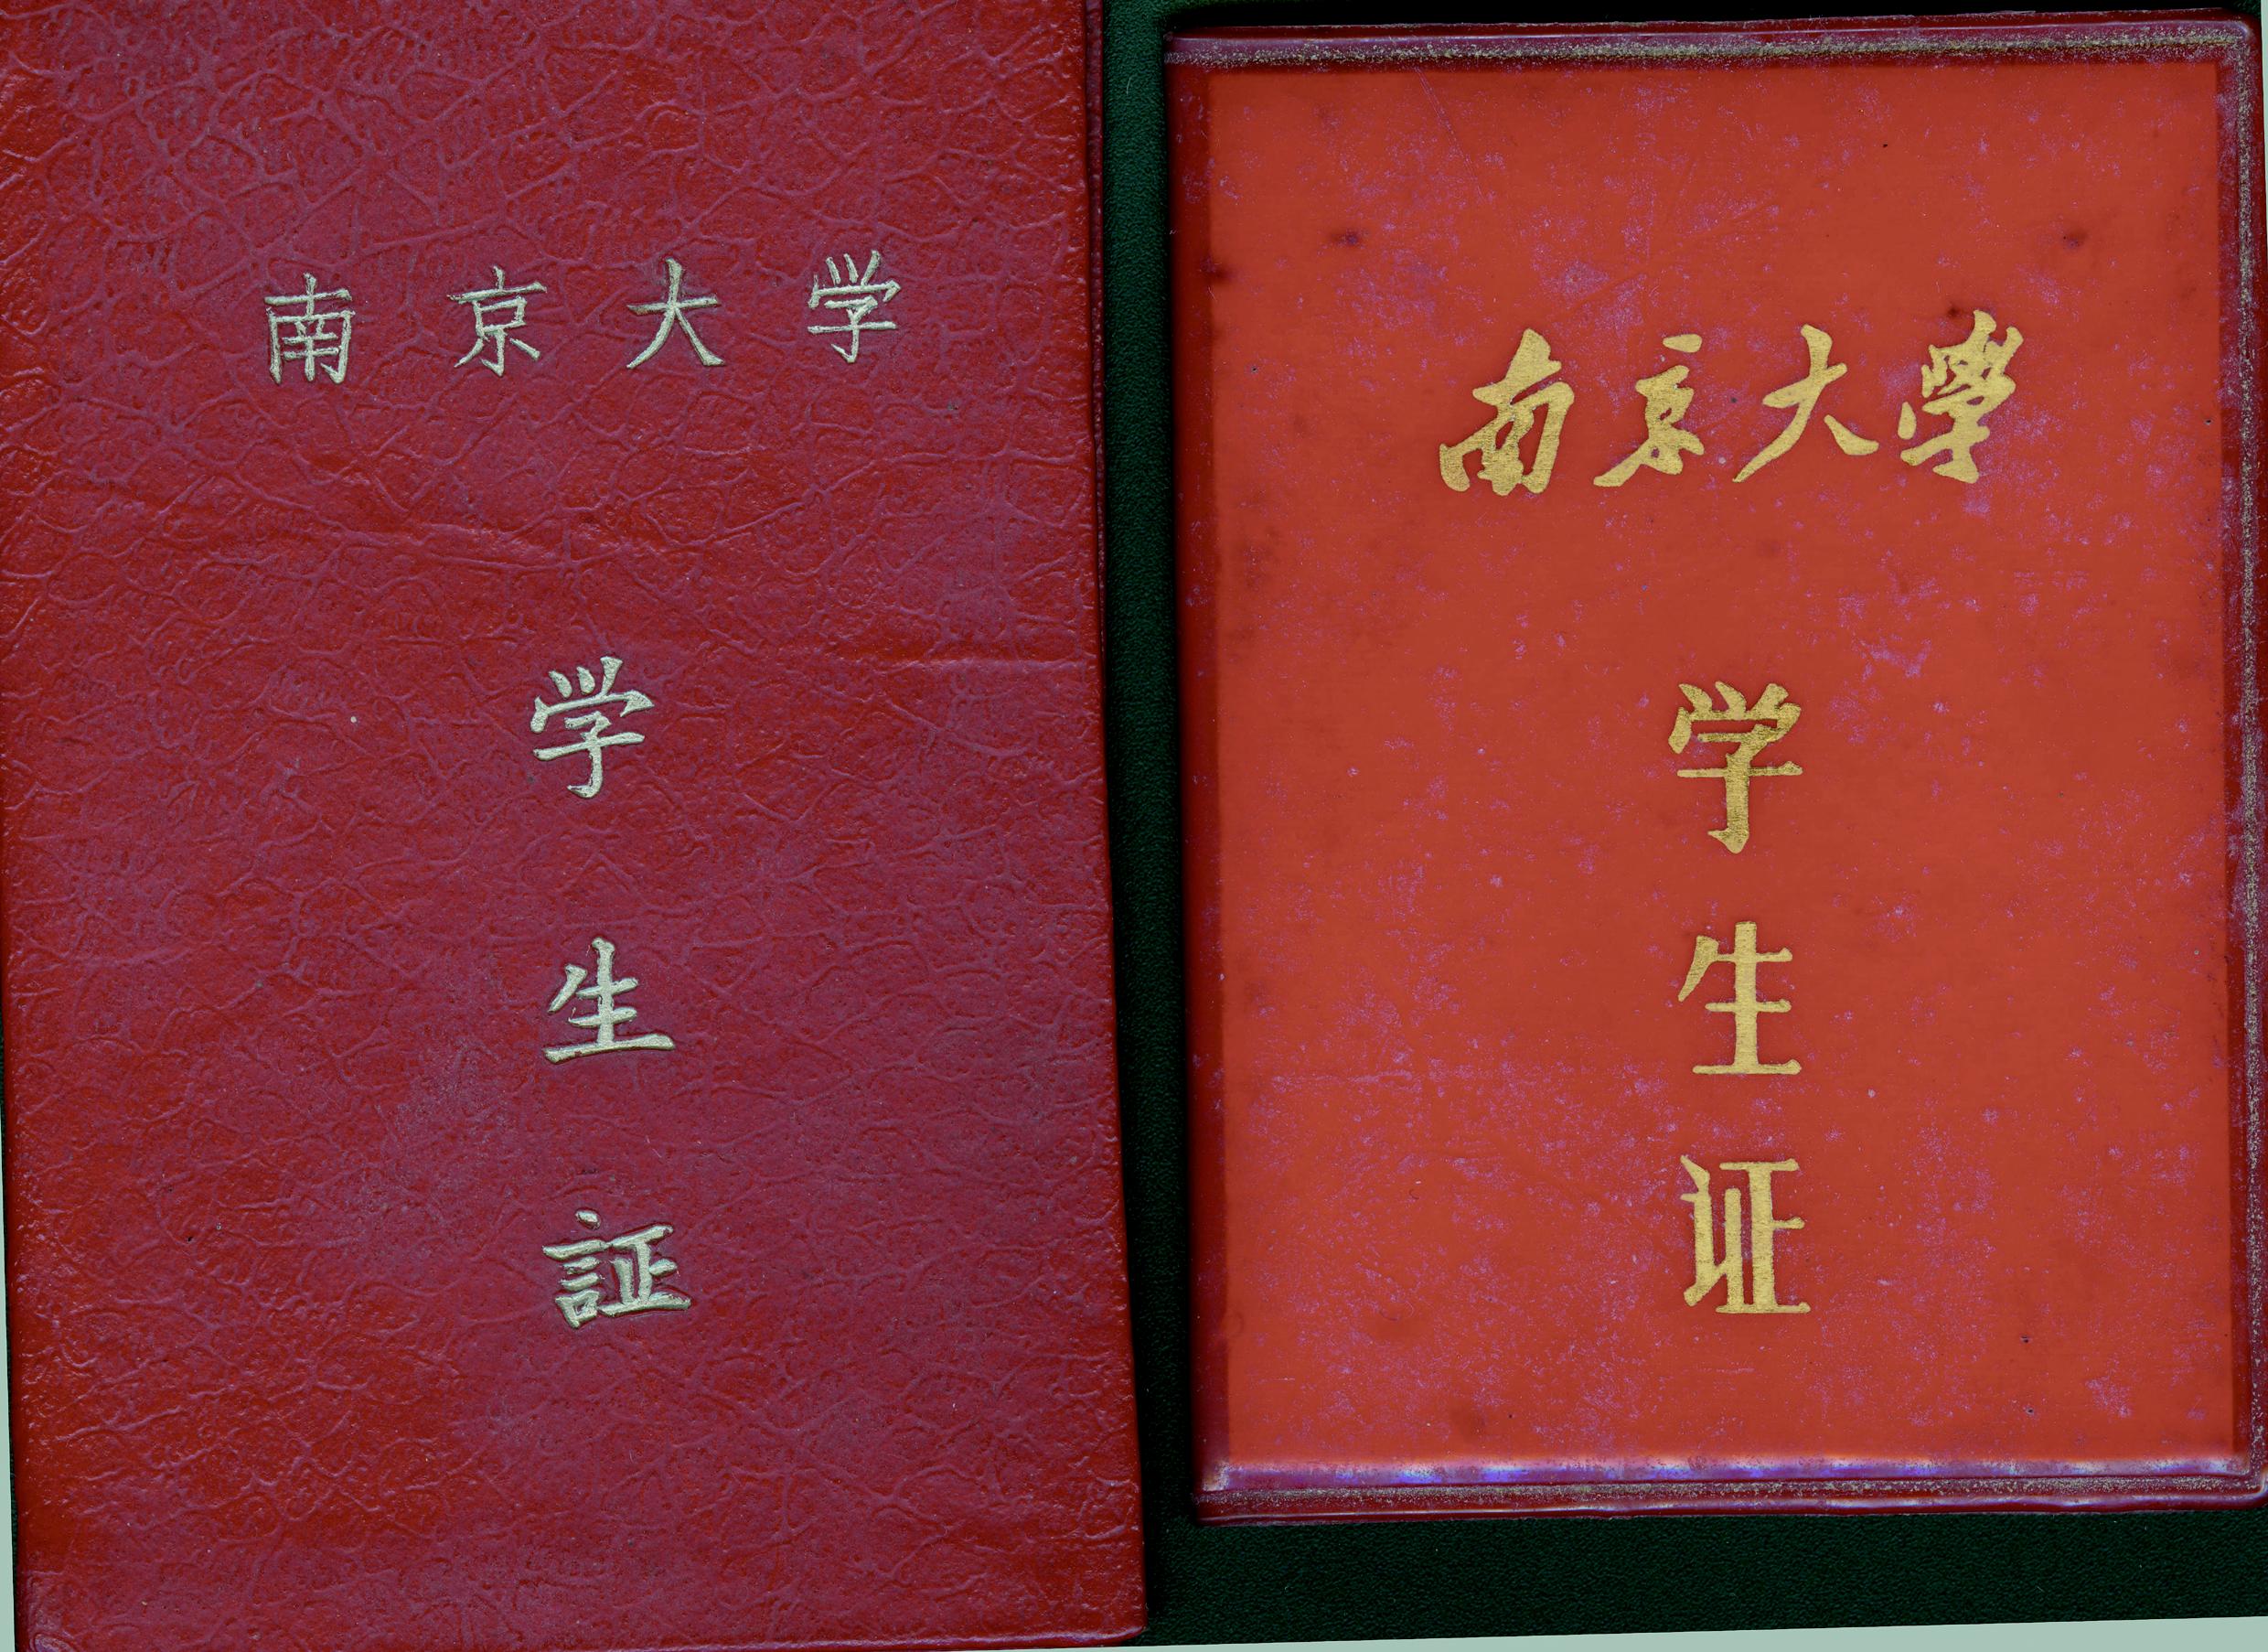 南京大学
学
生
証
南京大學
学
生
证